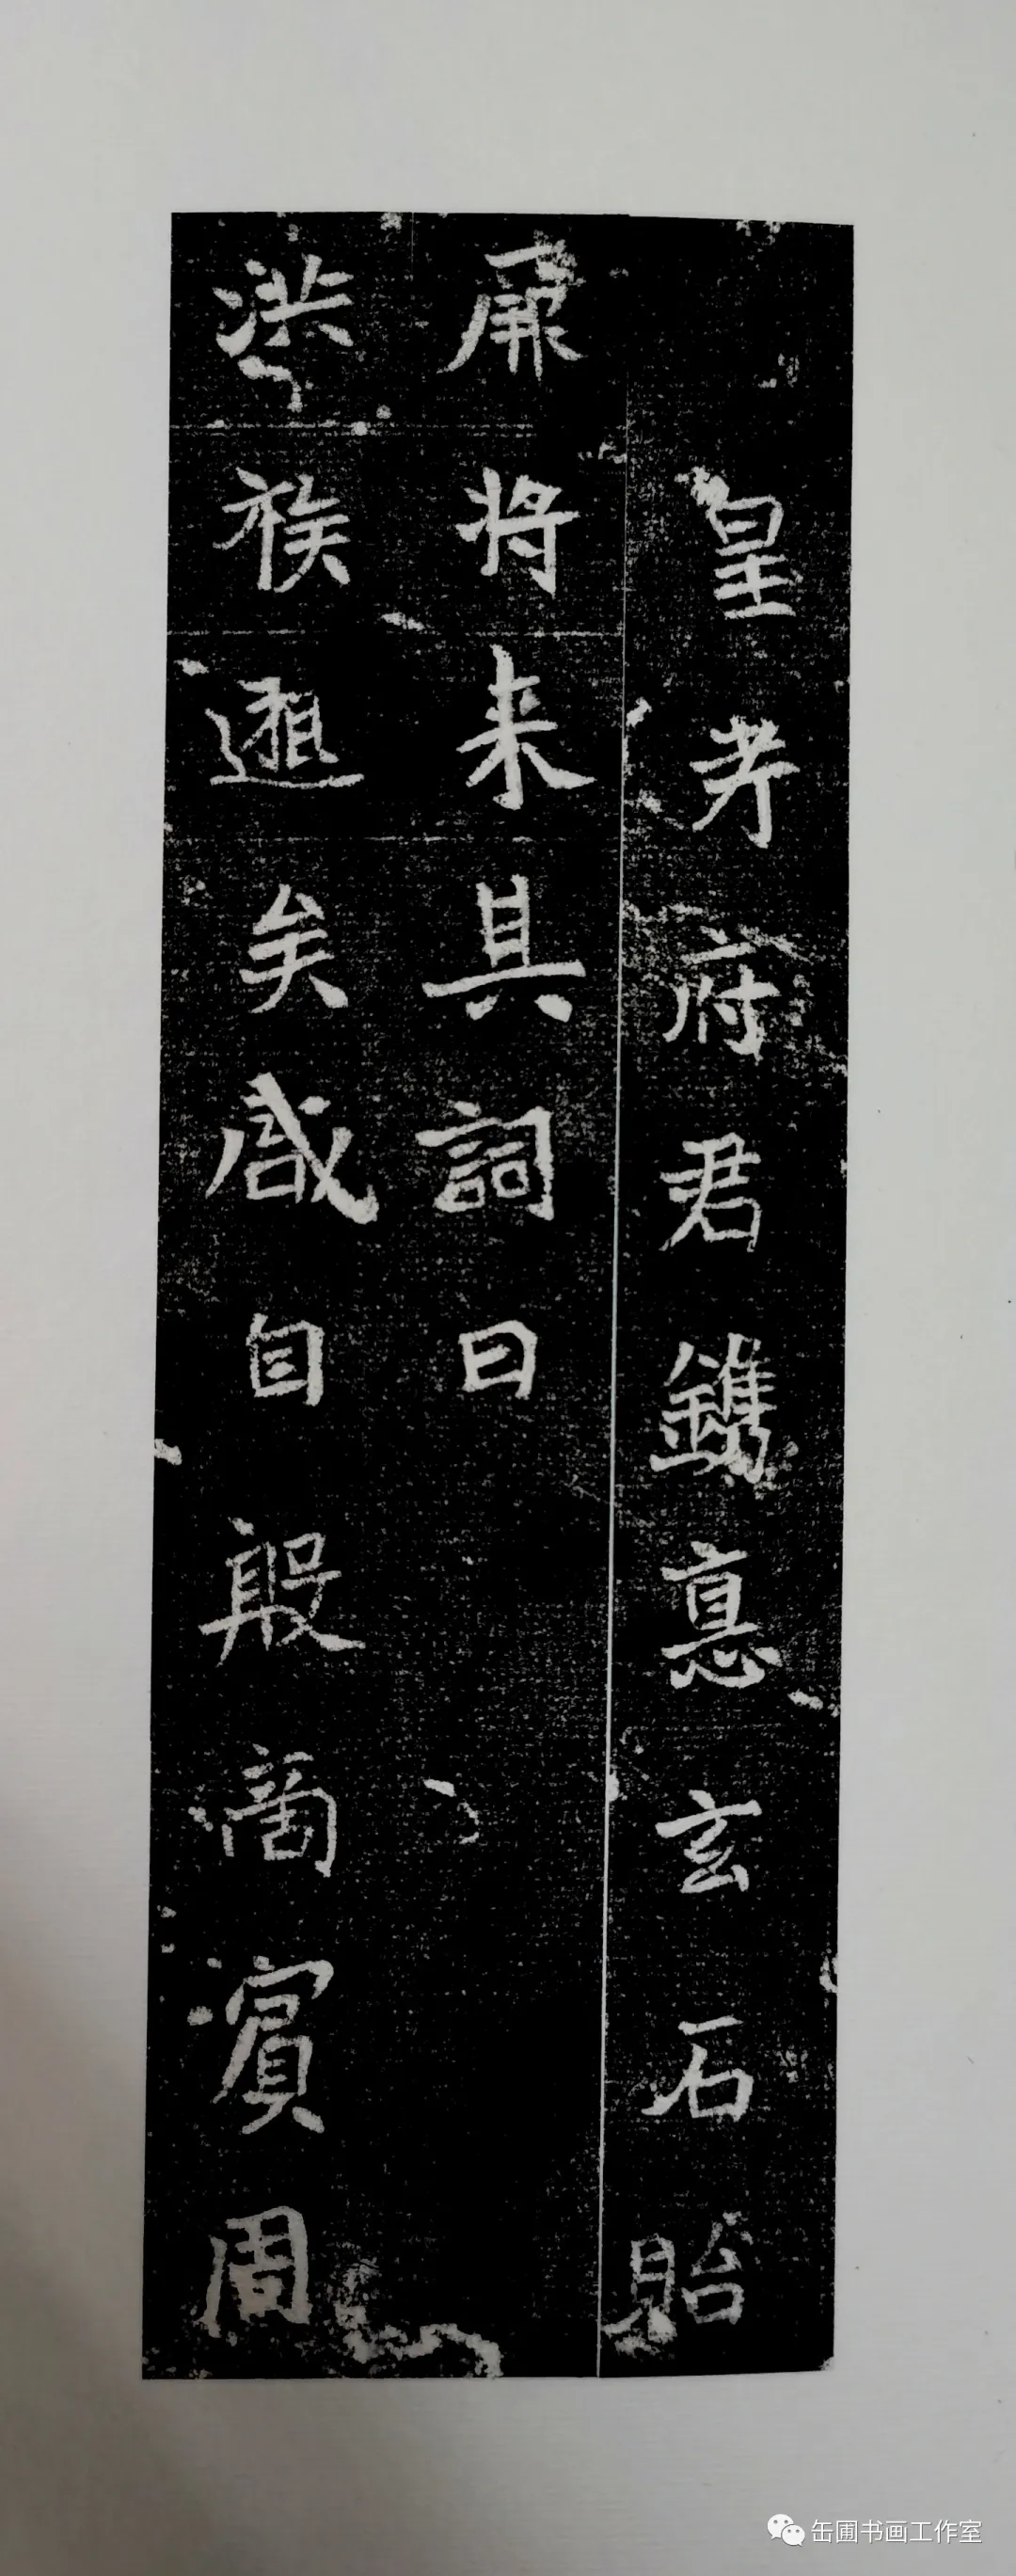 皇考府君鐫悳玄石貽
厥将来其詞曰
洪族遐矣咸自殷商賓周
缶圃书画工作室